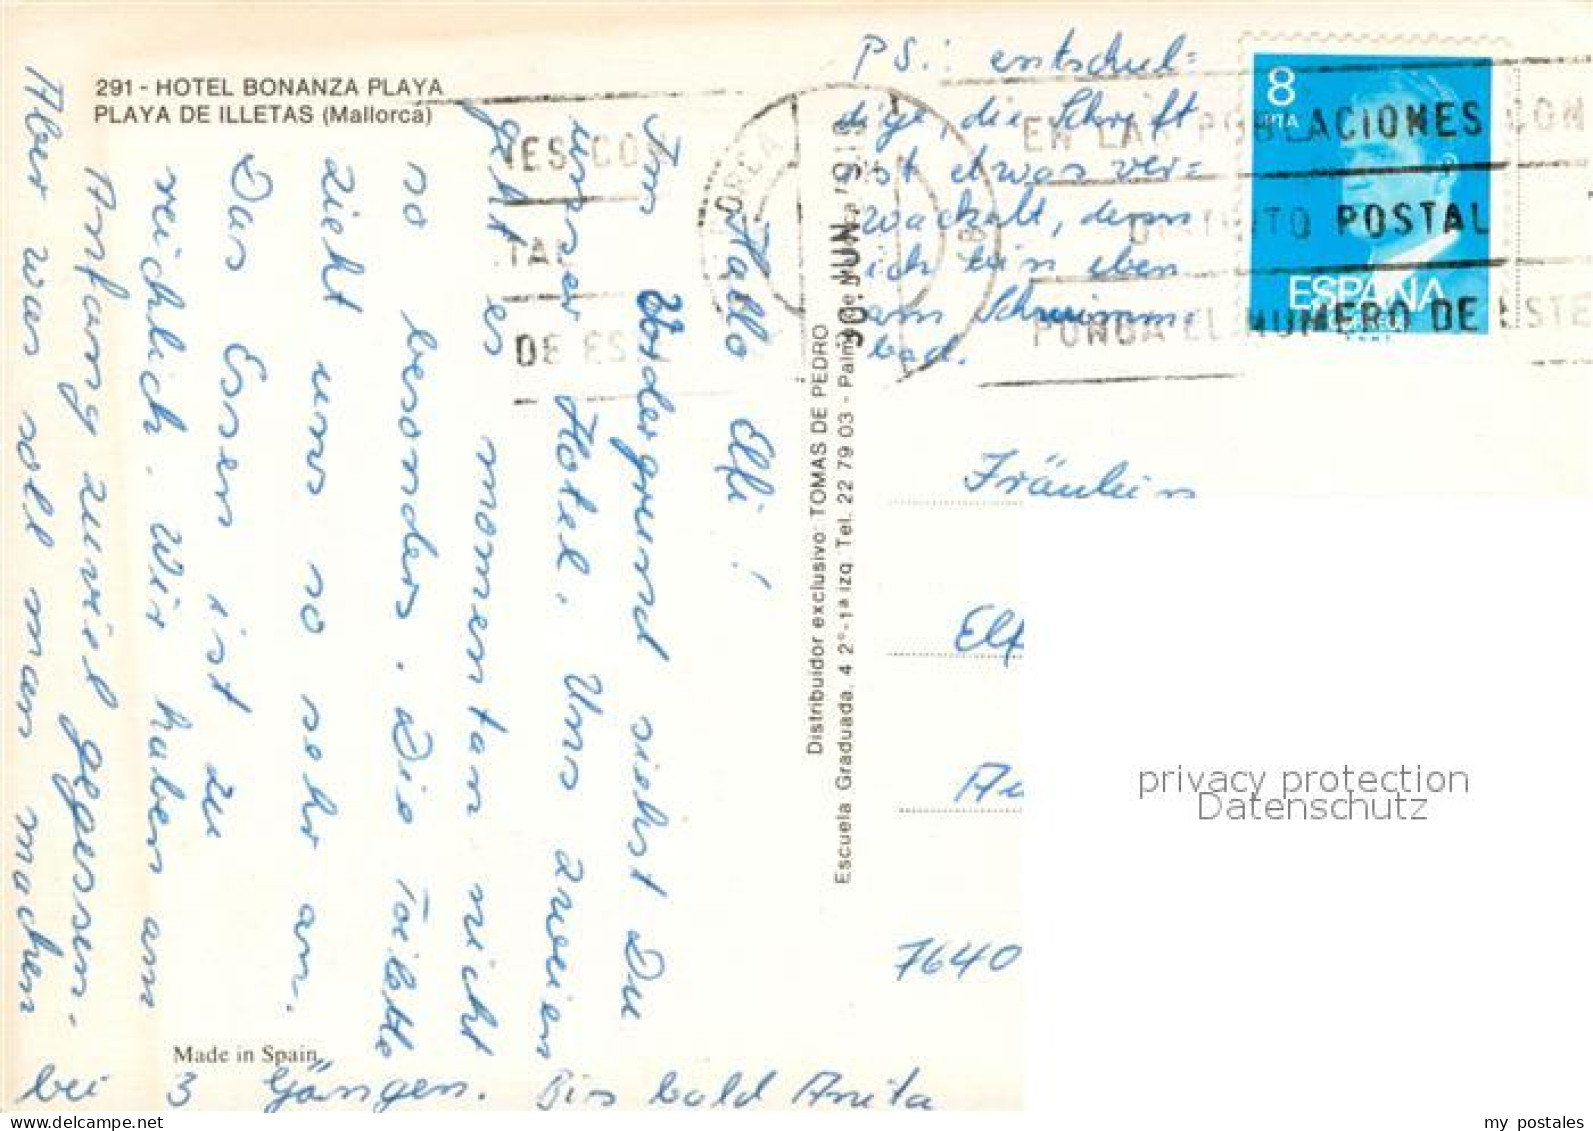 291 - HOTEL BONANZA PLAYA
PLAYA DE ILLETAS (Mallorca)
Hallo Elfi!
Im Vordergrund siehst Du
unser Hotel. Uns zweien
geht es momentan nicht
so besonders. Die Toilette
zieht uns so sehr an.
Das Essen ist zu
reichlich. Wir haben am
Anfang zuviel gegessen.
Aber was soll man machen
bei 3 Gängen. Bis bald Anita
Made in Spain
Distribuidor exclusivo: TOMAS DE PEDRO
Escuela Graduada, 4 2°-1ª izq. Tel. 22 79 03 - Palma de Mallorca
PS.: entschul=
dige, die Schrift
ist etwas ver=
wackelt, denn
ich bin eben
am Schwimm=
bad.
8
PTA
ESPAÑA
CORREOS
30.JUN.
EN LAS POBLACIONES CON
DISTRITO POSTAL
PONGA EL NUMERO DE ESTE
NES CON
TAL
DE ESTE
Fräulein
7640
privacy protection
Datenschutz
my postales